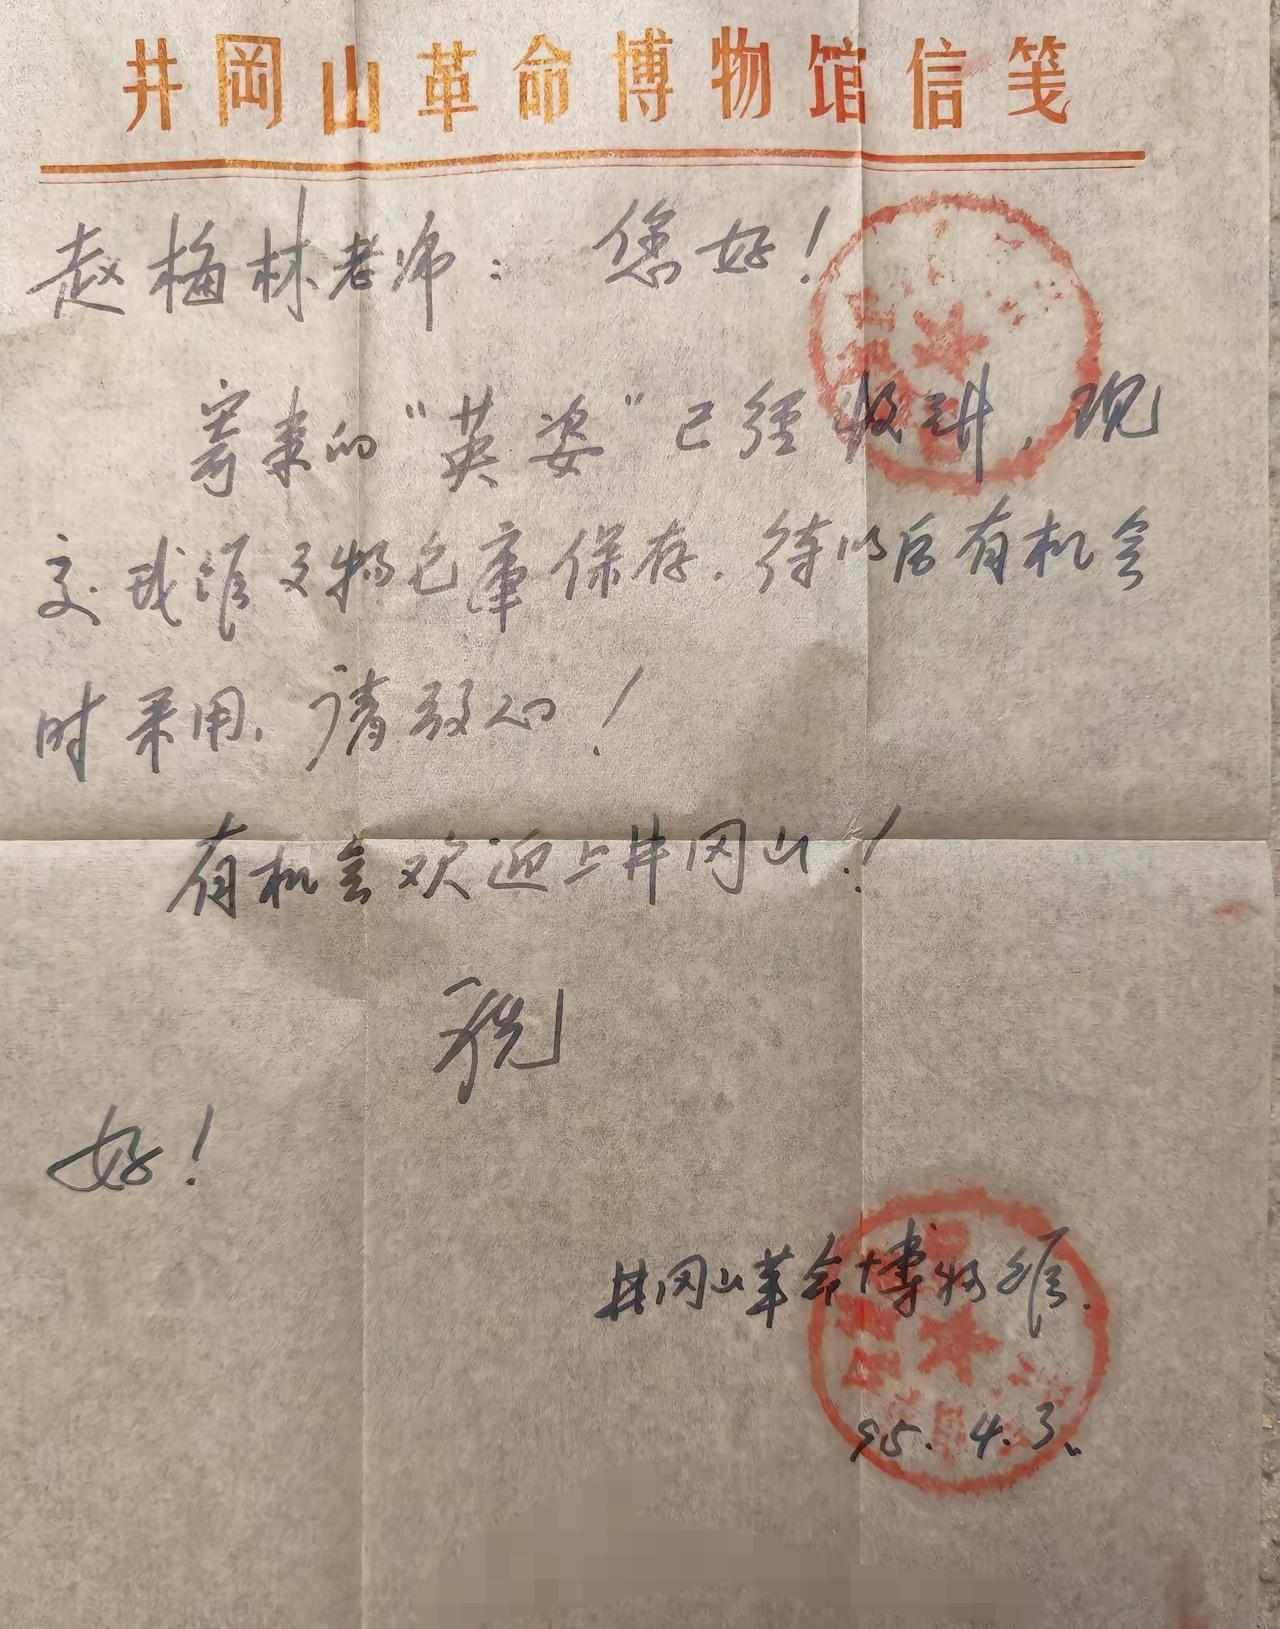 井冈山革命博物馆信笺
赵梅林老师：您好！
寄来的“英姿”已经收到，现
交我馆文物仓库保存，待以后有机会
时采用，请放心！
有机会欢迎上井冈山！
祝
好！
井冈山革命博物馆
95.4.3.